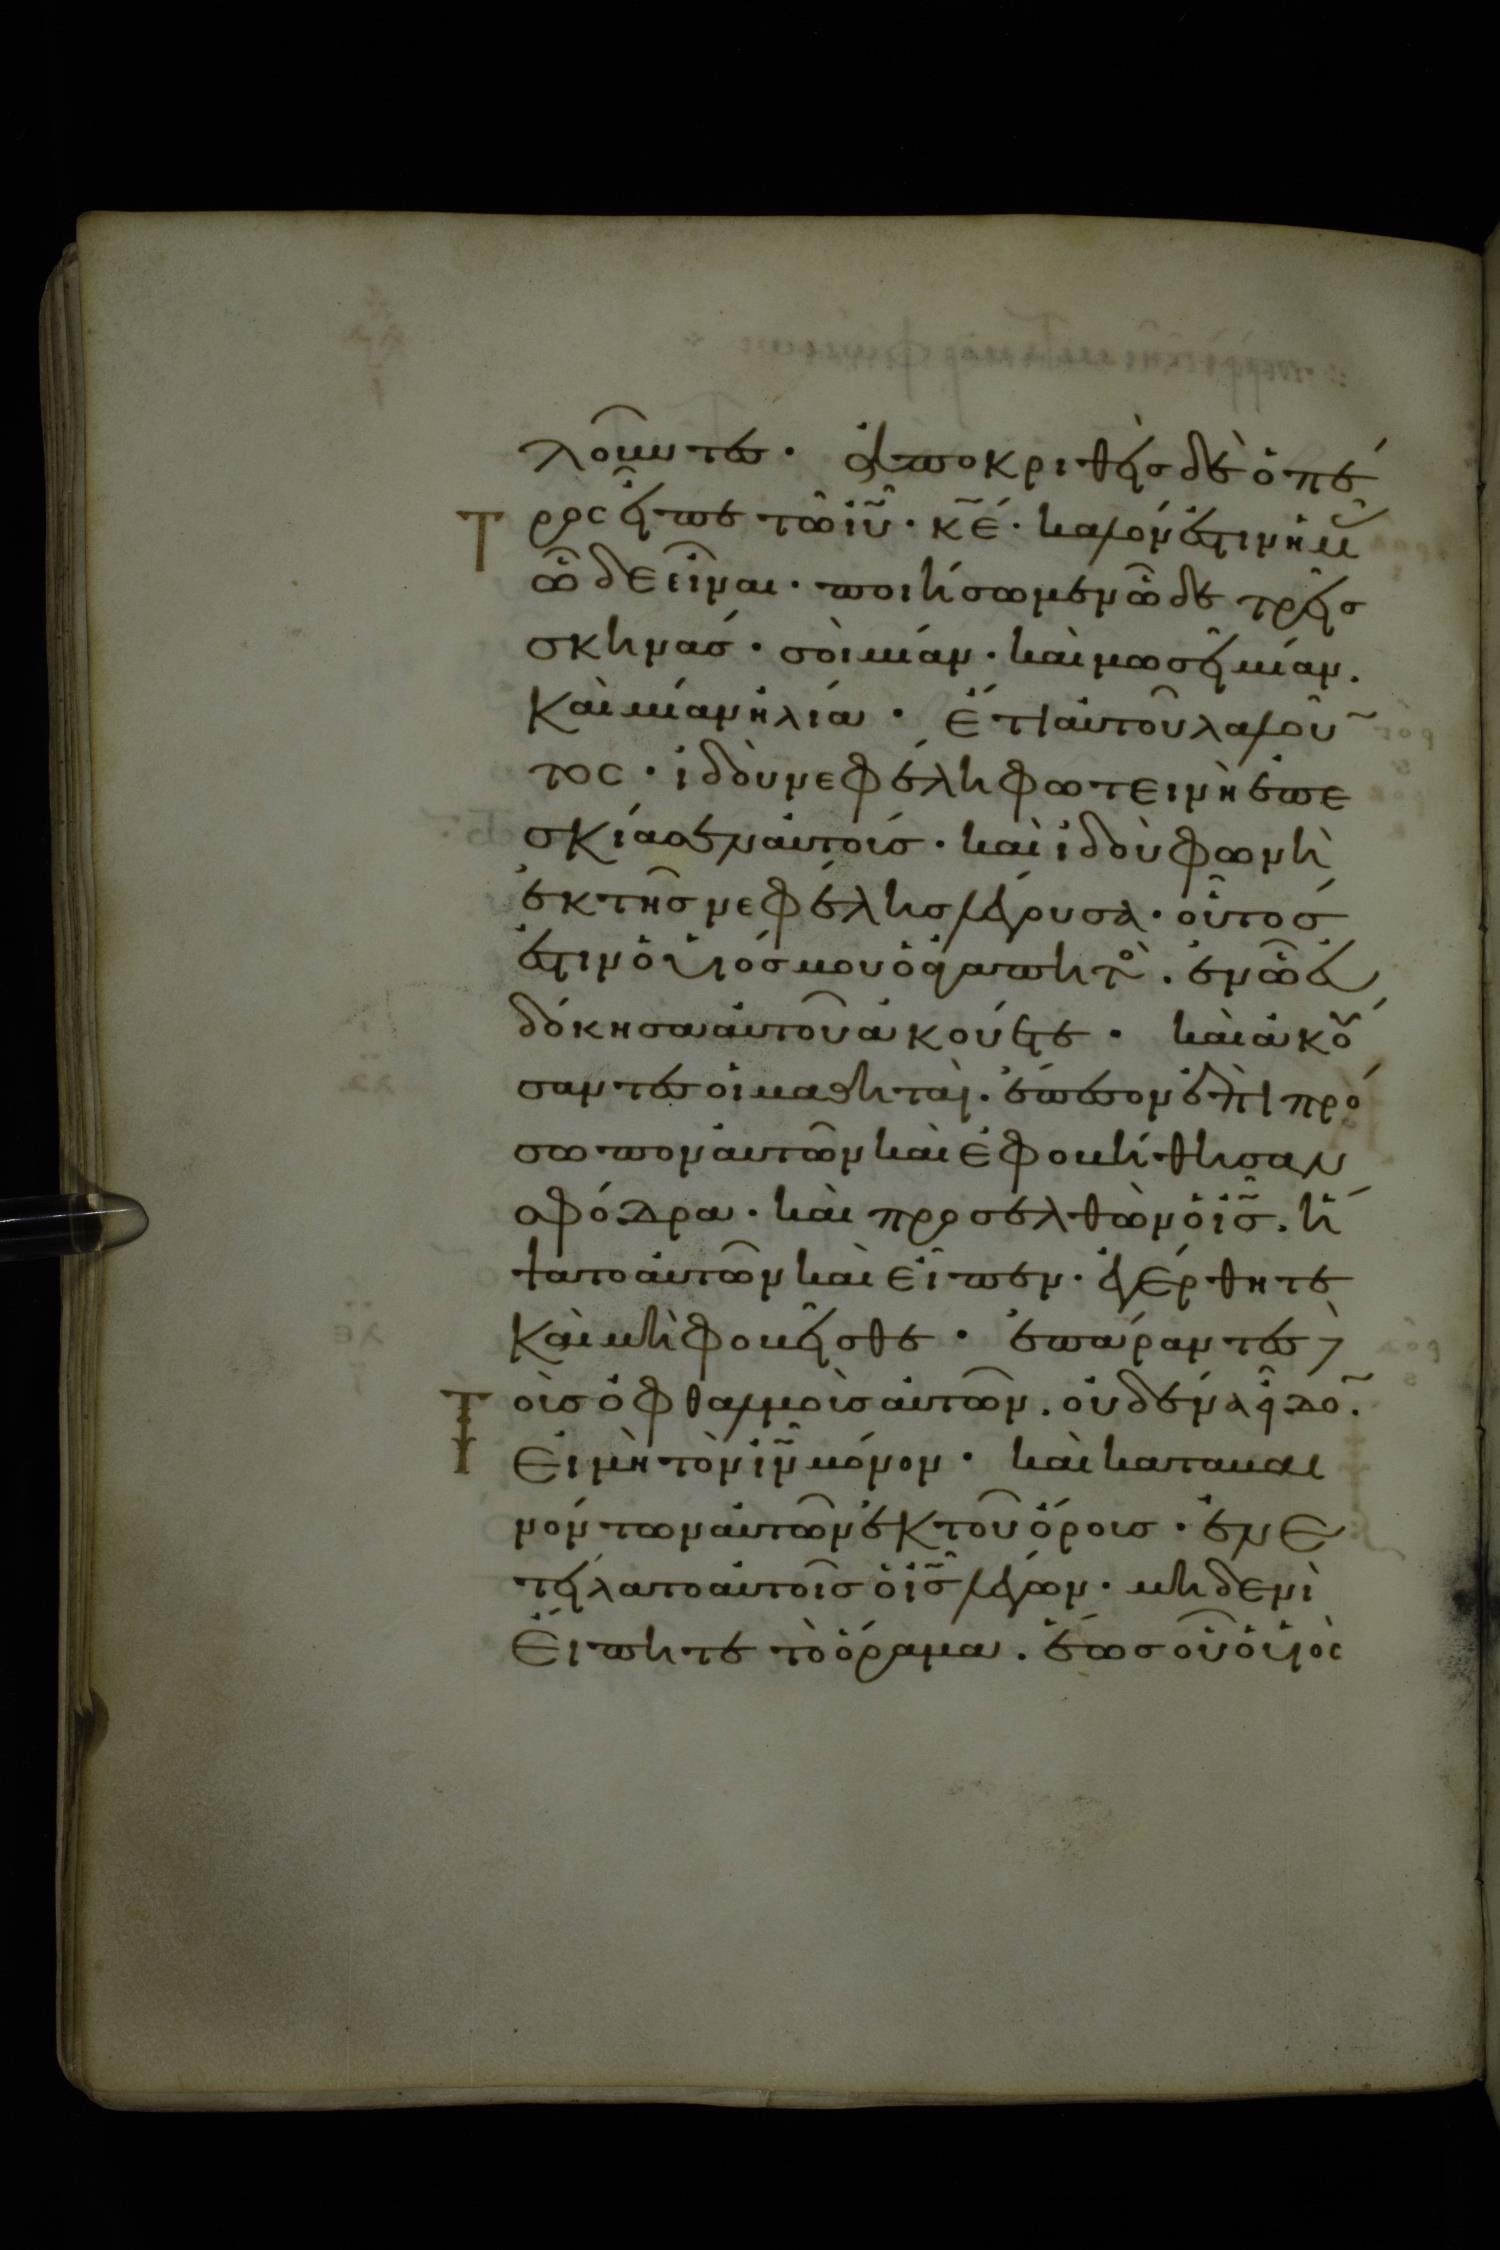 λοῦντες · ἀποκριθεὶς δὲ ὁ πέ
τρος εἶπε τῶ ἰῦ · κέ · καλόν ἐστιν ἡμᾶς
ὧδε εἶναι · ποιήσωμεν ὧδε τρεῖς
σκηνάς · σοὶ μίαν · καὶ μωσεῖ μίαν ·
καὶ μίαν ἡλία · ἔτι αὐτοῦ λαλοῦν
τος · ἰδοὺ νεφέλη φωτεινὴ ἐπε
σκίασεν αὐτοίς · καὶ ἰδοὺ φωνὴ
ἐκ τῆς νεφέλης λέγουσα · οὗτός
ἐστιν ὁ υἱός μου ὁ ἀγαπητὸς · ἐν ὧ εὐ
δόκησα αὐτοῦ ἀκούετε · καὶ ἀκού
σαντες οἱ μαθηταὶ · ἔπεσον ἐπὶ πρό
σωπον αὐτῶν καὶ ἐφοβήθησαν
σφόδρα · καὶ προσελθὼν ὁ ἰς · ἥ
ψατο αὐτῶν καὶ εἶπεν · ἐγέρθητε
καὶ μὴ φοβεῖσθε · ἐπάραντες δὲ
τοὺς ὀφθαλμοὺς αὐτῶν · οὐδένα εἶδον ·
εἰ μὴ τὸν ἰν μόνον · καὶ καταβαι
νόντων αὐτῶν ἐκ τοῦ ὄρους · ἐνε
τείλατο αὐτοῖς ὁ ἰς λέγων · μηδενὶ
εἴπητε τὸ ὅραμα · ἕως οὗ ὁ υἱὸς